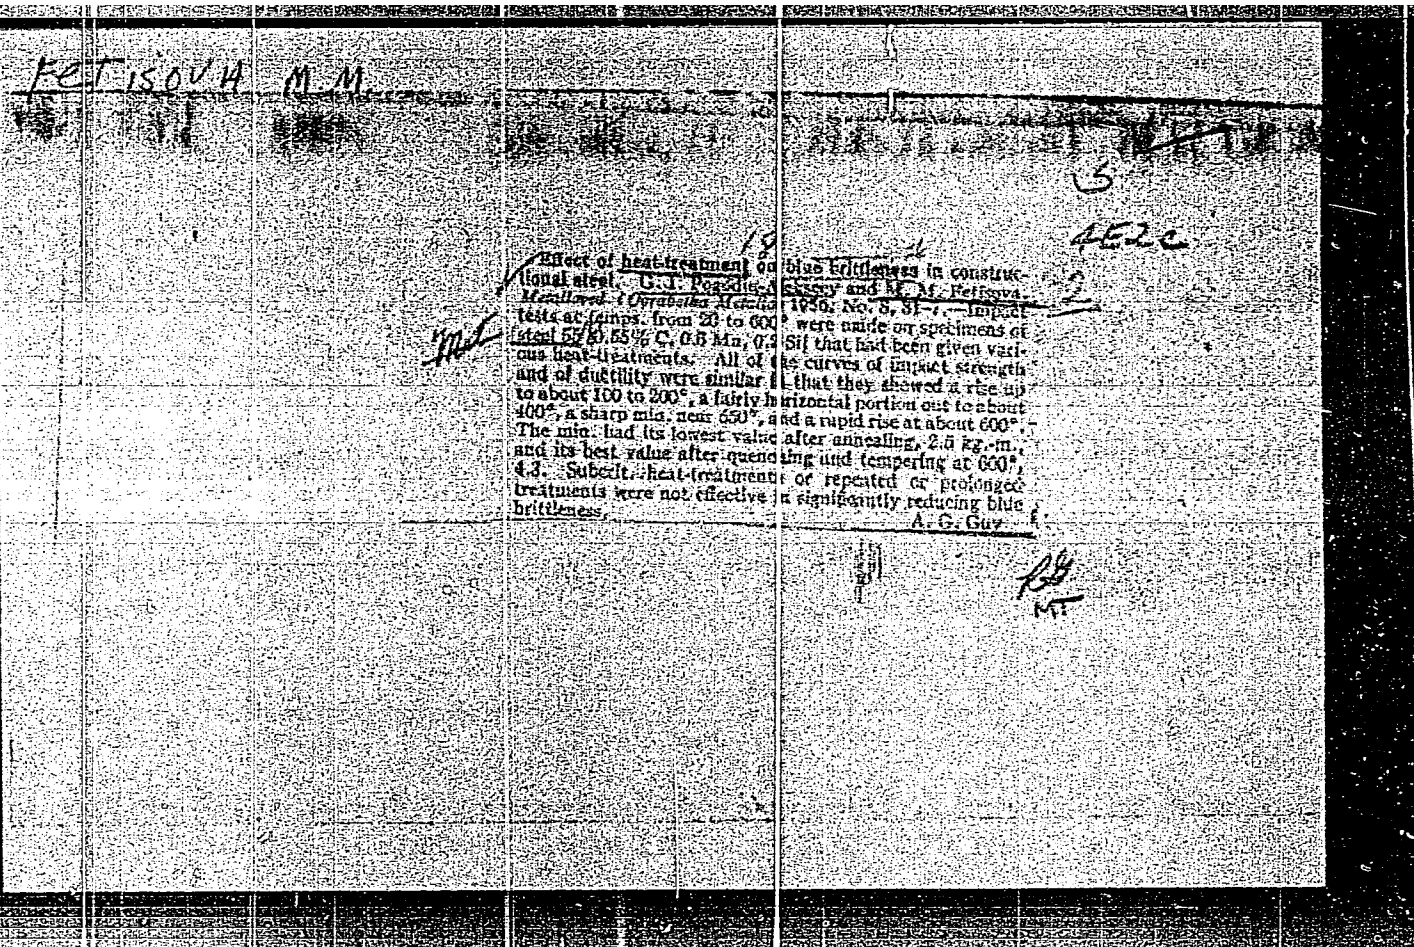 FETISOVA M.M.
5
4E2c
18
Effect of heat-treatment on blue brittleness in construc-
tional steel. G. I. Pogodin-Alekseev and M. M. Fetisova.
Metalloved. i Obrabotka Metallov 1956, No. 8, 31-7.—Impact
tests at temps. from 20 to 600° were made on specimens of
steel 55 [0.55% C, 0.6 Mn, 0.2 Si] that had been given vari-
ous heat-treatments. All of the curves of impact strength
and of ductility were similar in that they showed a rise up
to about 100 to 200°, a fairly horizontal portion out to about
400°, a sharp min. near 550°, and a rapid rise at about 600°.
The min. had its lowest value after annealing, 2.5 kg.-m.,
and its best value after quenching and tempering at 600°,
4.3. Subcrit. heat-treatments or repeated or prolonged
treatments were not effective in significantly reducing blue
brittleness.
A. G. Guy
Met
MT